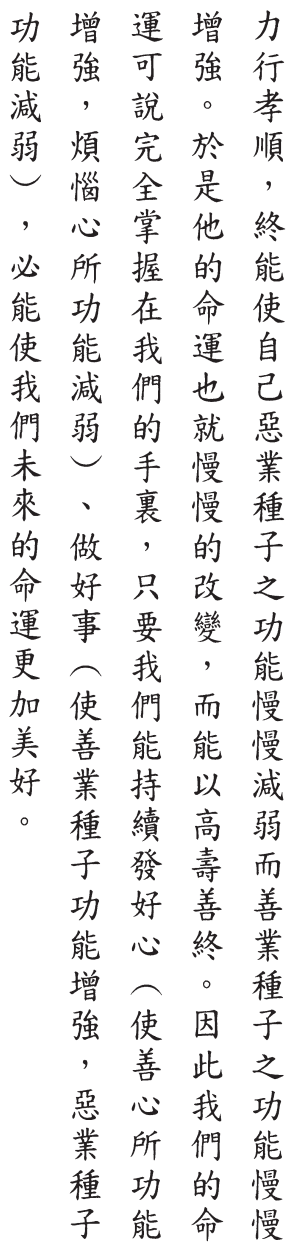 力行孝順，終能使自己惡業種子之功能慢慢減弱而善業種子之功能慢慢
增強。於是他的命運也就慢慢的改變，而能以高壽善終。因此我們的命
運可說完全掌握在我們的手裏，只要我們能持續發好心（使善心所功能
增強，煩惱心所功能減弱）、做好事（使善業種子功能增強，惡業種子
功能減弱），必能使我們未來的命運更加美好。